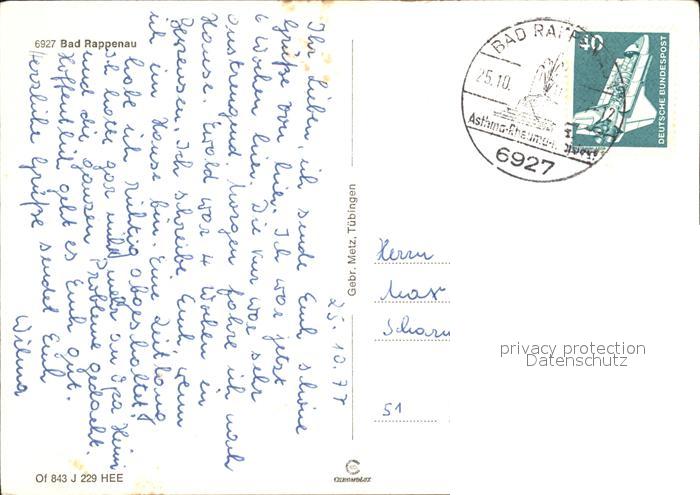 6927 Bad Rappenau
25.10.77
Ihr Lieben, ich sende Euch schöne
Grüße von hier. Ich war jetzt
6 Wochen hier. Die Kur war sehr
anstrengend. Morgen fahre ich nach
Hause. Ewald war 4 Wochen in
Ich schreibe Euch, wenn
ich im Hause bin. Eine Zeitlang
habe ich richtig abgeschaltet!
Ich hatte gar nicht mehr an Opa Heini
und die ganzen Probleme gedacht.
Hoffentlich geht es Euch gut.
Herzliche Grüße sendet Euch
Wilma
Of 843 J 229 HEE
Gebr. Metz, Tübingen
BAD RAPPENAU
25.10.
Asthma-Rheuma-
6927
DEUTSCHE BUNDESPOST
Herrn
Max
51
privacy protection
Datenschutz